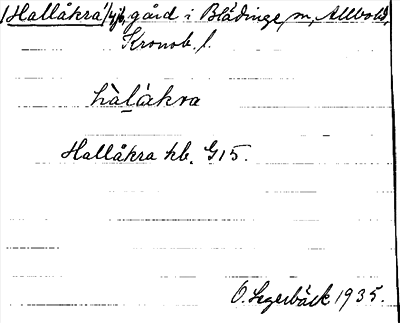 /Hallåkra/ gård i Blädinge, Allbo
Kronob. l.
hàlákra
Hallåkra kb. G15.
O. Segerbäck 1935.